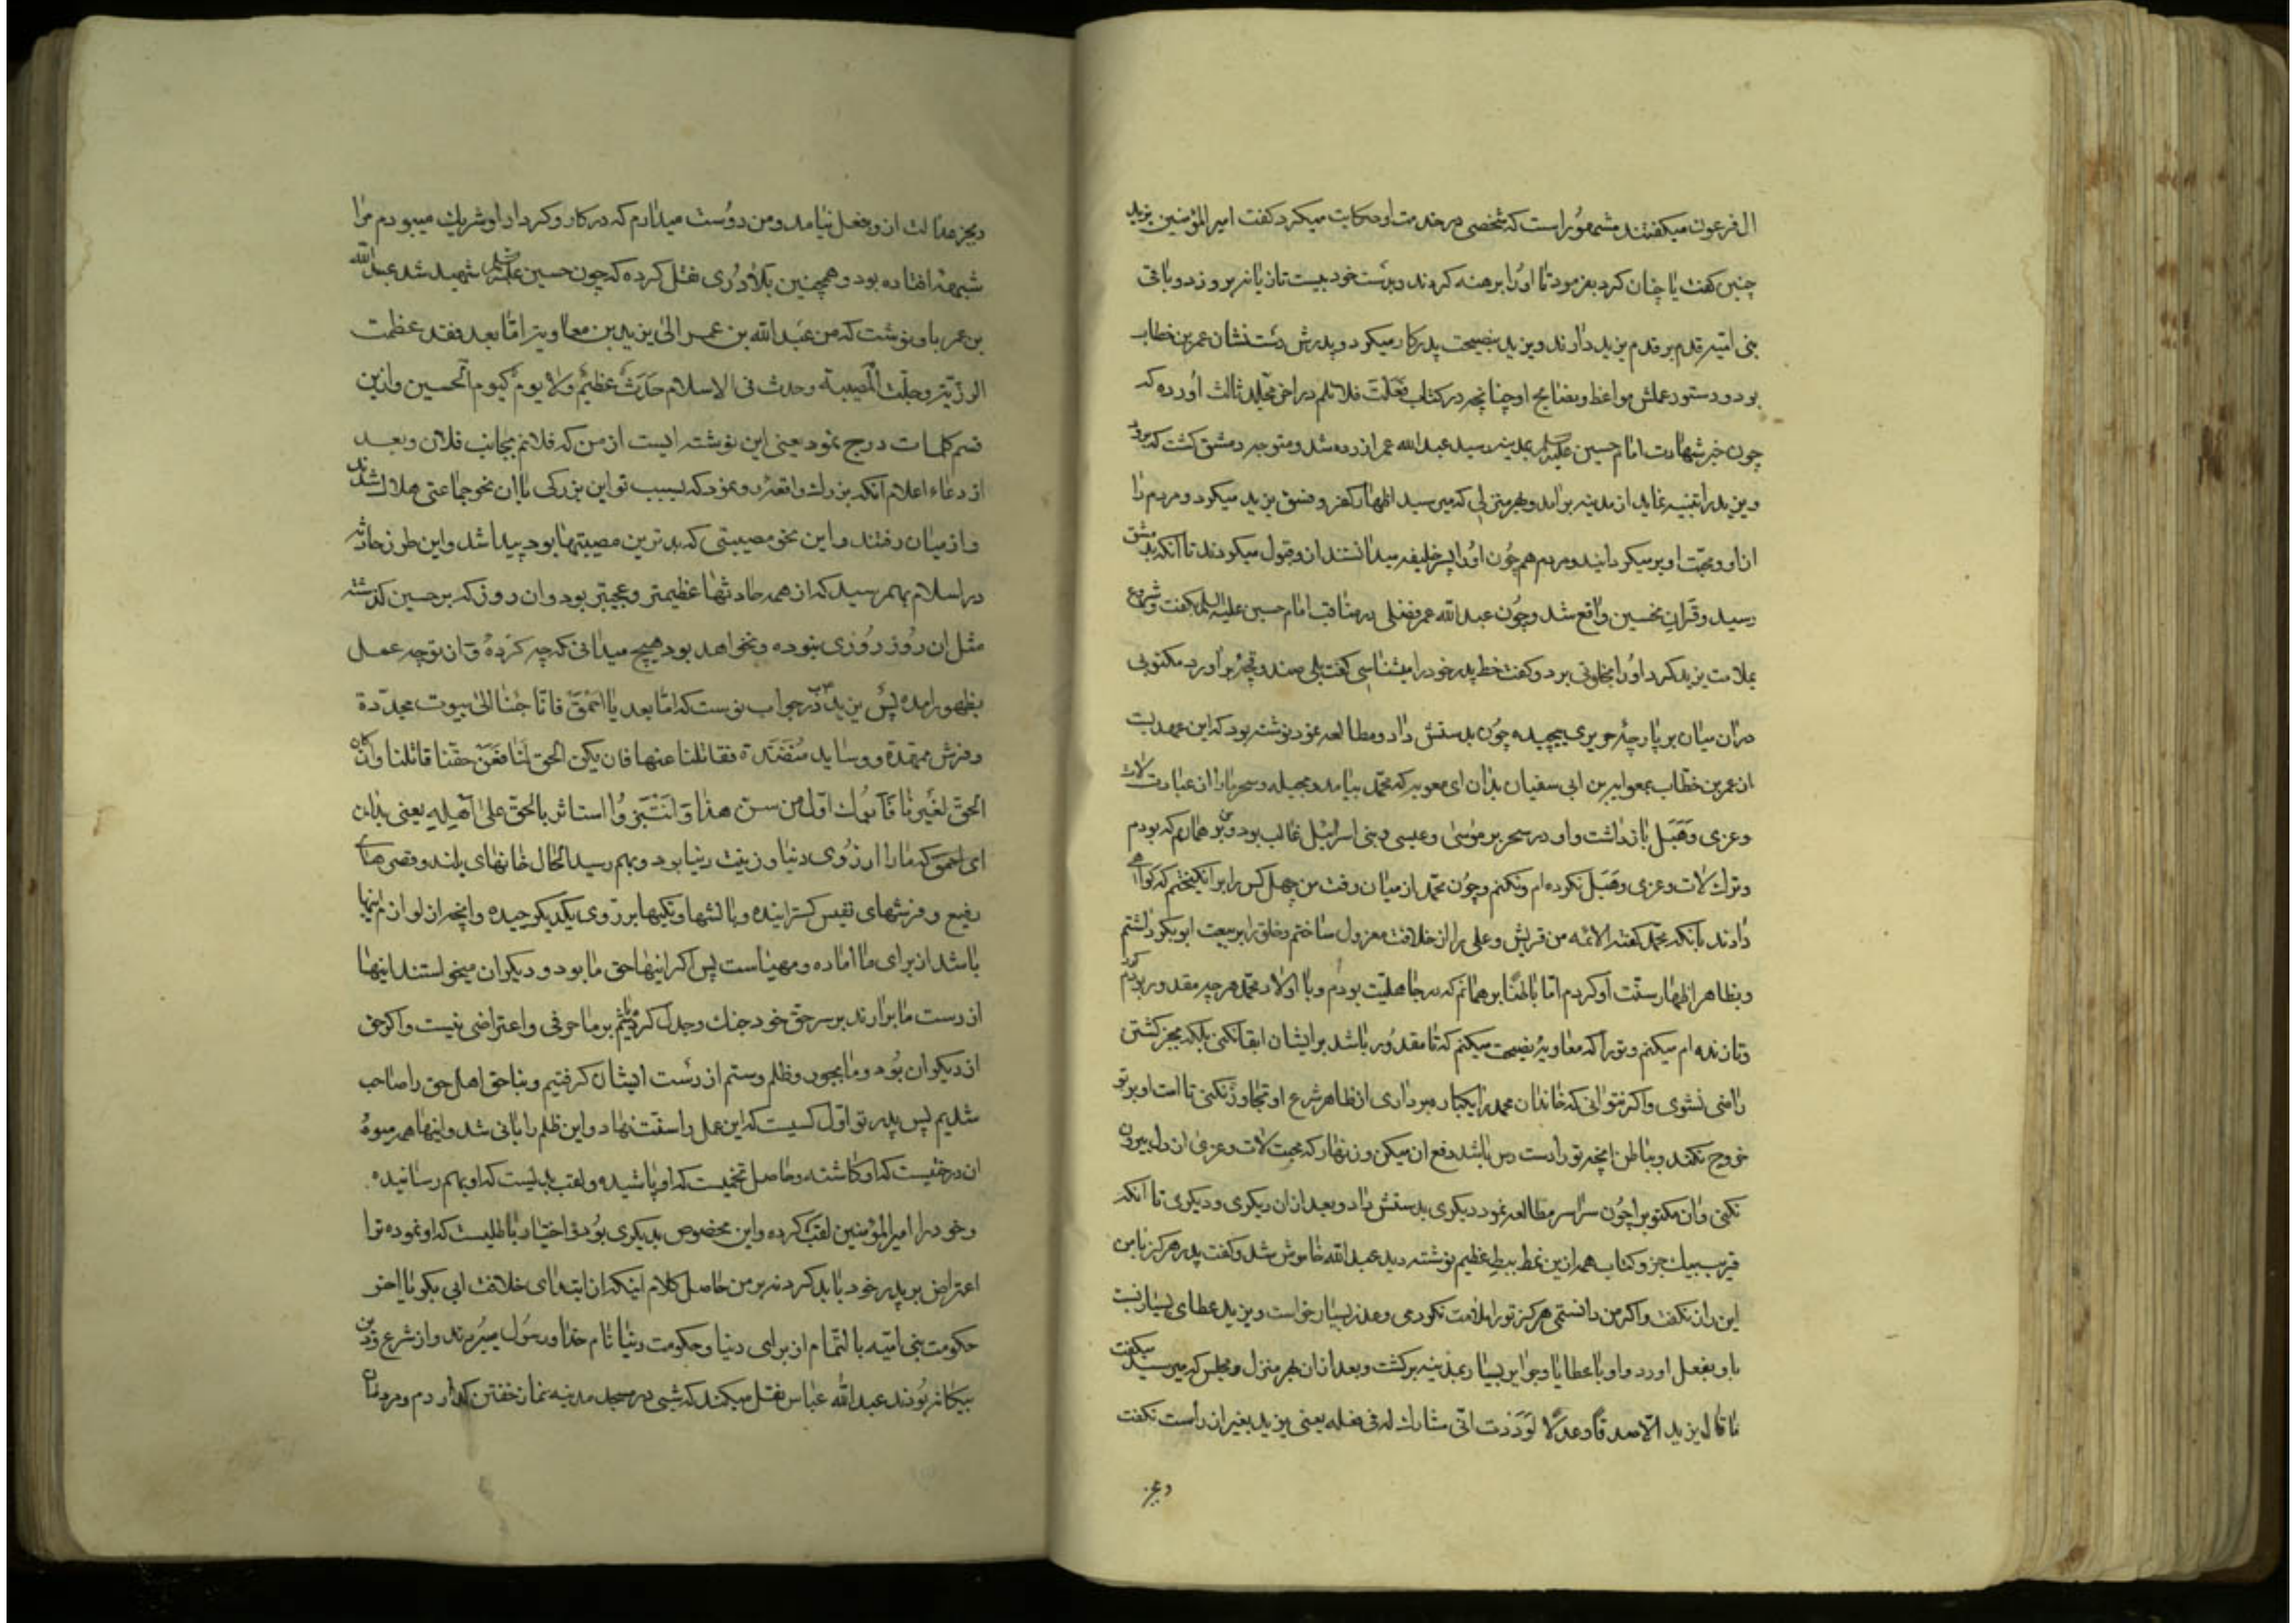 ال فرعون میکفتند مشهور است که شخصی در خدمت او حکایت میکرد کفت امیر المؤمنین یزید
چنین کفت یا چنان کرد بفرمود تا او را برهنه کردند و بدست خود بیست تازیانه برو زد و باقی
بنی امیه قدم بر قدم یزید دارند و یزید بنصیحت پدر کار میکرد و پدرش دست نشان عمر بن خطاب
بود و دستور عملش مواعظ و نصایح او چنانچه در کتاب فعلت فلا تلم در اخر مجلد ثالث آورده که
چون خبر شهادت امام حسین علیه السلم بمدینه رسید عبد الله عمر ازرده شد و متوجه دمشق کشت که برود
و یزید را تنبیه نماید از مدینه برامد و بهر منزلی که میرسید اظهار کفر و فسق یزید میکرد و مردم را
از او و محبت او بر میکردانید و مردم هم چون او را پسر خلیفه میدانستند ازو قبول میکردند تا آنکه بدمشق
رسید و قران نحسین واقع شد و چون عبد الله عمر فصلی در مناقب امام حسین علیه السلم کفت و شروع
بملامت یزید کرد او را بخلوتی برد و کفت خط پدر خود را میشناسی کفت بلی صندوقچه بر اورد مکتوبی
در ان میان بر پارچهٔ حریری پیچیده چون بدستش داد و مطالعه نمود نوشته بود که این عهدیست
از عمر بن خطاب بمعویه بن ابی سفیان بدان ای معویه که محمد بیامد و بحیله و سحر ما را از عبادت لات
و عزی و هبل بازداشت و او در سحر بر موسی و عیسی و بنی اسرائیل غالب بود و من بر همانم که بودم
و ترک لات و عزی و هبل نکرده ام و نکنم و چون محمد از میان رفت من چهل کس را برانکیختم که کواهی
دادند بانکه محمد کفته الائمه من قریش و علی را از خلافت معزول ساختم و خلق را بر بیعت ابو بکر داشتم
و بظاهر اظهار سنّت او کردم اما باطنًا بر همانم که در جاهلیت بودم و با اولاد محمد هر چه مقدور بود کردم
و تا زنده ام میکنم و تو را که معاویهٔ نصیحت میکنم که تا مقدور باشد بر ایشان ابقا نکنی بلکه بجز کشتن
راضی نشوی و اکر نتوانی که خاندان محمد را یکباره برداری از ظاهر شرع او تجاوز نکنی تا امت او بر تو
خروج نکنند و بباطن انچه تو را دست رس باشد دفع ان میکن و زنهار که محبت لات و عزی از دل بیرون
نکنی و ان مکتوب را چون سراسر مطالعه نمود دیکری بدستش داد و بعد از ان دیکری و دیکری تا انکه
قریب بیک جزو کتاب همه ازین نمط ببط عظیم نوشته دید عبد الله خاموش شد و کفت پدر هرکز با من
این راز نکفت و اکر من دانستمی هرکز تو را ملامت نکردمی و عذر بسیار خواست و یزید عطای بسیار نسبت
باو بفعل اورد و او با عطایا و جوایز بسیار بمدینه برکشت و بعد از ان بهر منزل و مجلس که میرسید میکفت
ما قال یزید الّا صدقًا و عدلًا لوددت انّی شارک له فی فعله یعنی یزید بغیر از راست نکفت
و بجز
و بجز عدالت ازو بفعل نیامد و من دوست میدارم که در کار و کردار او شریک میبودم مرا
شبهه افتاده بود و همچنین بلاذری نقل کرده که چون حسین علیه السلم شهید شد عبد الله
بن عمر باو نوشت که من عبد الله بن عمر الی یزید بن معاویة امّا بعد فقد عظمت
الرزیّة و جلّت المصیبة و حدث فی الاسلام حدث عظیم و لا یوم کیوم الحسین و ازین
قسم کلمات درج نمود یعنی این نوشته ایست از من که فلانم بجانب فلان و بعد
از دعاء اعلام انکه بزرك واقعهٔ رو نمود که بسبب تو این بزرکی با ان نحو جماعتی هلاك شدند
و از میان رفتند و این نحو مصیبتی که بدترین مصیبتها بود پیدا شد و این طرز حادثه
در اسلام بهم رسید که از همه حادثها عظیمتر و عجیبتر بود و ان روز که بر حسین کذشته
مثل ان روز روزی نبوده و نخواهد بود هیچ میدانی که چه کردهٔ و از تو چه عمل
بظهور امده پس یزید در جواب نوشت که امّا بعد یا احمق فانّا جئنا الی بیوت مجدّدة
و فرش ممهّدة و وساید منضّدة فقاتلنا عنها فان یکن الحق لنا فعن حقّنا قاتلنا و ان کان
الحق لغیرنا فابوك اوّل من سنّ هذا و استاثر بالحق علی اهله یعنی بدان
ای احمق که ما را ارزوی دنیا و زینت دنیا بود و بهم رسید الحال خانهای بلند و قصرهای
رفیع و فرشهای نفیس کسترانیده و بالشها و تکیها بر روی یکدیکر چیده و انچه از لوازم اینها
باشد از برای ما اماده و مهیا است پس اکر اینها حق ما بود و دیکران میخواستند اینها
از دست ما برارند بر سر حق خود جنك و جدل کرده باشیم بر ما حرفی و اعتراضی نیست و اکر حق
از دیکران بود و ما بجور و ظلم و ستم از دست ایشان کرفتیم و بناحق اهل حق را صاحب
شدیم پس پدر تو اوّل کسیست که این عمل را سنّت نهاد و این ظلم را بانی شد و اینها همه میوهٔ
ان درختیست که او کاشته و حاصل تخمیست که او پاشیده و لقب بدیست که او بهم رسانیده
و خود را امیر المؤمنین لقب کرده و این مخصوص بدیکری بود و اختیار باطلیست که او نموده ترا
اعتراض بر پدر خود باید کرد نه بر من حاصل کلام اینکه از ابتدای خلافت ابی بکر تا اخر
حکومت بنی امیّه بالتمام از برای دنیا و حکومت دنیا نام خدا و رسول میبردند و از شرع و دین
بیکانه بودند عبد الله عباس نقل میکند که شبی در مسجد مدینه نماز خفتن کذاردم و مردمان